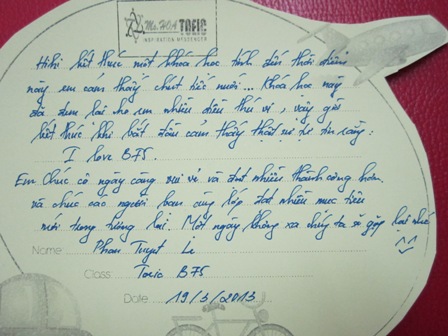 Ms.HOA TOEIC
INSPIRATION MESSENGER
Hihi kết thúc một khóa học tính đến thời điểm
này em cảm thấy chút tiếc nuối... Khóa học này
đã đem lại cho em nhiều điều thú vị, vậy giờ
kết thúc khi bắt đầu cảm thấy thật
I love B75.
Em chúc cô ngày càng vui vẻ và đạt nhiều thành công hơn
và chúc các người bạn cùng lớp đạt nhiều mục tiêu
mới trong tương lai. Một ngày không xa chúng ta sẽ gặp lại nhé
^^
Name Phan Tuyết
Class: Toeic B75
Date 19/3/2013